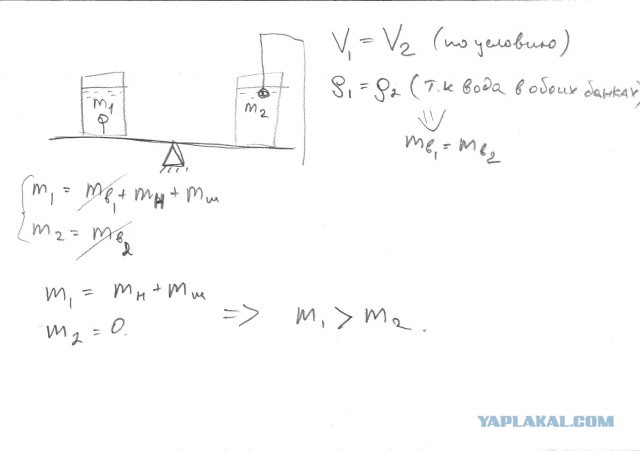 V₁ = V₂ (по условию)
ρ₁ = ρ₂ (т.к вода в обоих банках)
⇓
m_в₁ = m_в₂
m₁
m₂
m₁ = m_в₁ + m_н + m_ш
m₂ = m_в₂
m₁ = m_н + m_ш
m₂ = 0.
=> m₁ > m₂.
YAPLAKAL.COM